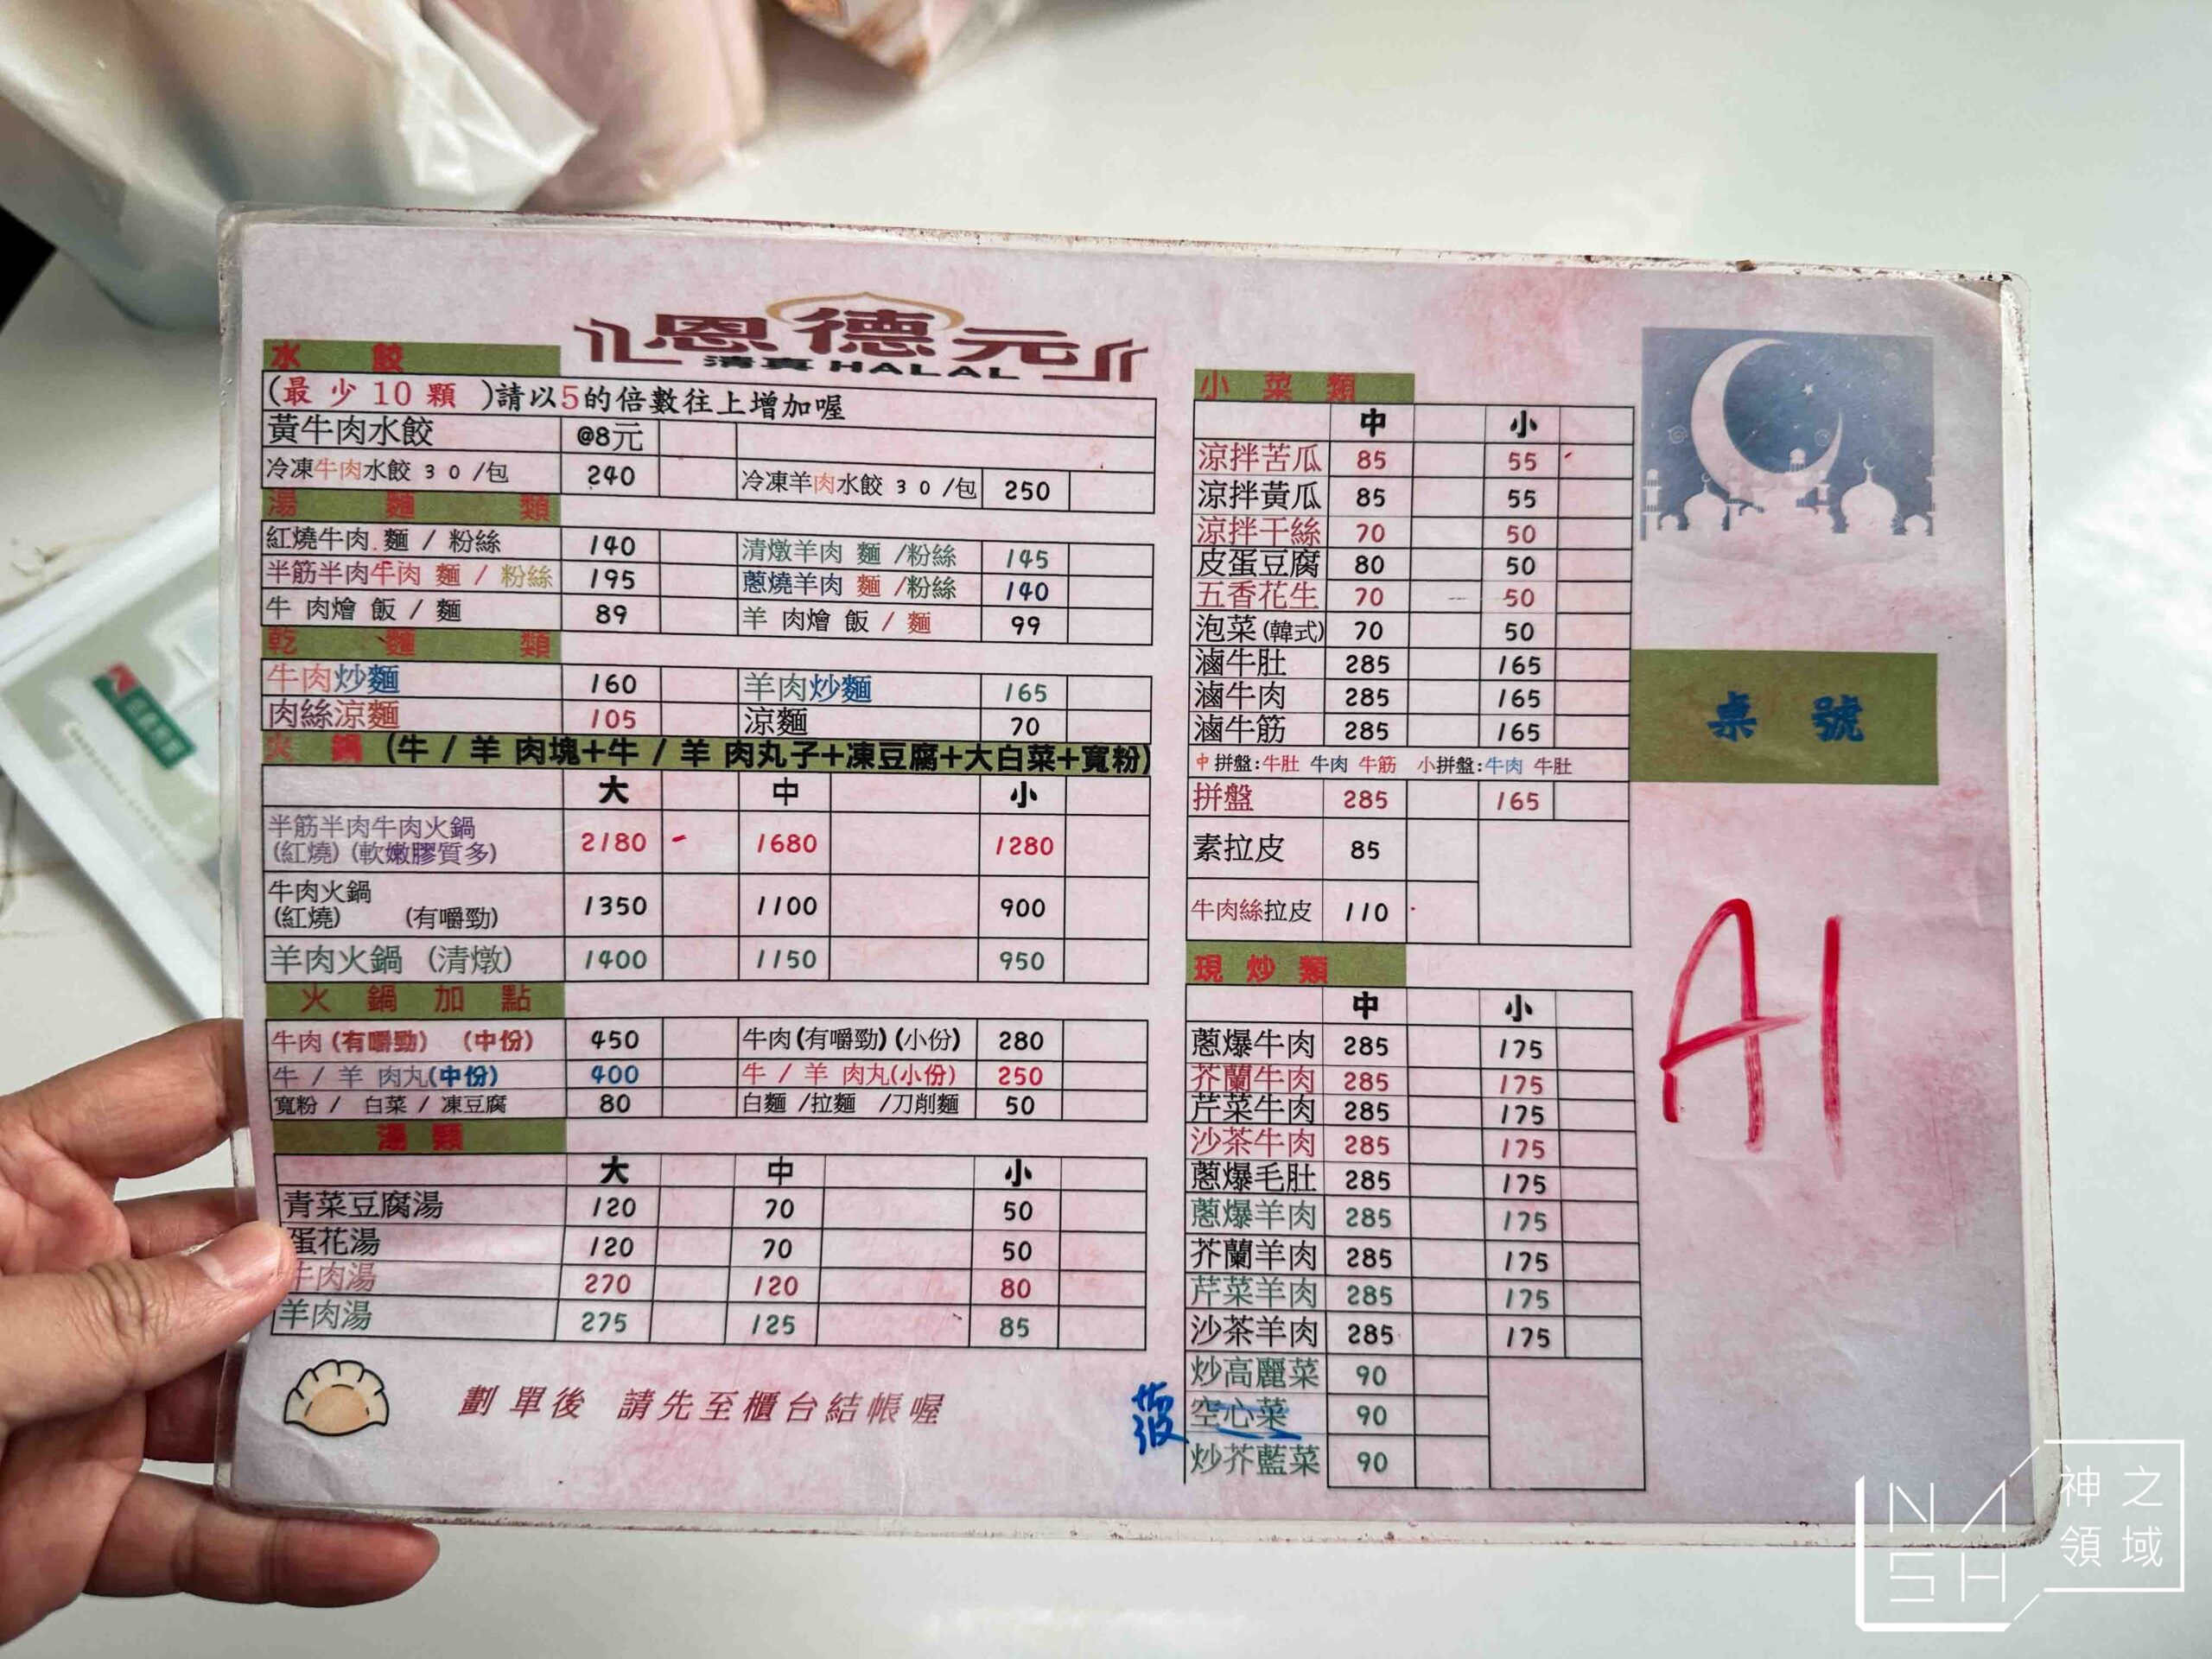 恩德元
清真HALAL
水餃
(最少10顆)請以5的倍數往上增加喔
黃牛肉水餃 @8元
冷凍牛肉水餃 30/包 240 冷凍羊肉水餃 30/包 250
湯麵類
紅燒牛肉 麵 / 粉絲 140 清燉羊肉 麵 /粉絲 145
半筋半肉牛肉 麵 / 粉絲 195 蔥燒羊肉 麵 /粉絲 140
牛 肉燴 飯 / 麵 89 羊 肉燴 飯 / 麵 99
乾麵類
牛肉炒麵 160 羊肉炒麵 165
肉絲涼麵 105 涼麵 70
火鍋 (牛 / 羊 肉塊+牛 / 羊 肉丸子+凍豆腐+大白菜+寬粉)
大 中 小
半筋半肉牛肉火鍋
(紅燒) (軟嫩膠質多) 2180 1680 1280
牛肉火鍋
(紅燒) (有嚼勁) 1350 1100 900
羊肉火鍋 (清燉) 1400 1150 950
火鍋加點
牛肉 (有嚼勁) (中份) 450 牛肉(有嚼勁) (小份) 280
牛 / 羊 肉丸(中份) 400 牛 / 羊 肉丸(小份) 250
寬粉 / 白菜 / 凍豆腐 80 白麵 /拉麵 /刀削麵 50
湯類
大 中 小
青菜豆腐湯 120 70 50
蛋花湯 120 70 50
牛肉湯 270 120 80
羊肉湯 275 125 85
劃單後 請先至櫃台結帳喔
小菜類
中 小
涼拌苦瓜 85 55
涼拌黃瓜 85 55
涼拌干絲 70 50
皮蛋豆腐 80 50
五香花生 70 50
泡菜(韓式) 70 50
滷牛肚 285 165
滷牛肉 285 165
滷牛筋 285 165
中拼盤:牛肚 牛肉 牛筋 小拼盤:牛肉 牛肚
拼盤 285 165
素拉皮 85
牛肉絲拉皮 110
現炒類
中 小
蔥爆牛肉 285 175
芥蘭牛肉 285 175
芹菜牛肉 285 175
沙茶牛肉 285 175
蔥爆毛肚 285 175
蔥爆羊肉 285 175
芥蘭羊肉 285 175
芹菜羊肉 285 175
沙茶羊肉 285 175
炒高麗菜 90
菠 空心菜 90
炒芥藍菜 90
桌號
A1
NASH
神之領域